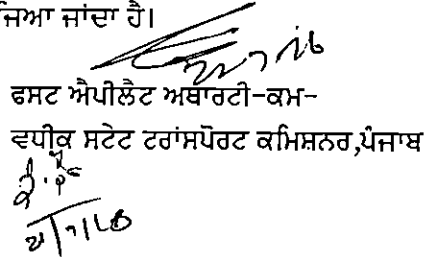 ਜਿਆ ਜਾਂਦਾ ਹੈ।
ਫਸਟ ਐਪੀਲੈਟ ਅਥਾਰਟੀ-ਕਮ-
ਵਧੀਕ ਸਟੇਟ ਟਰਾਂਸਪੋਰਟ ਕਮਿਸ਼ਨਰ,ਪੰਜਾਬ